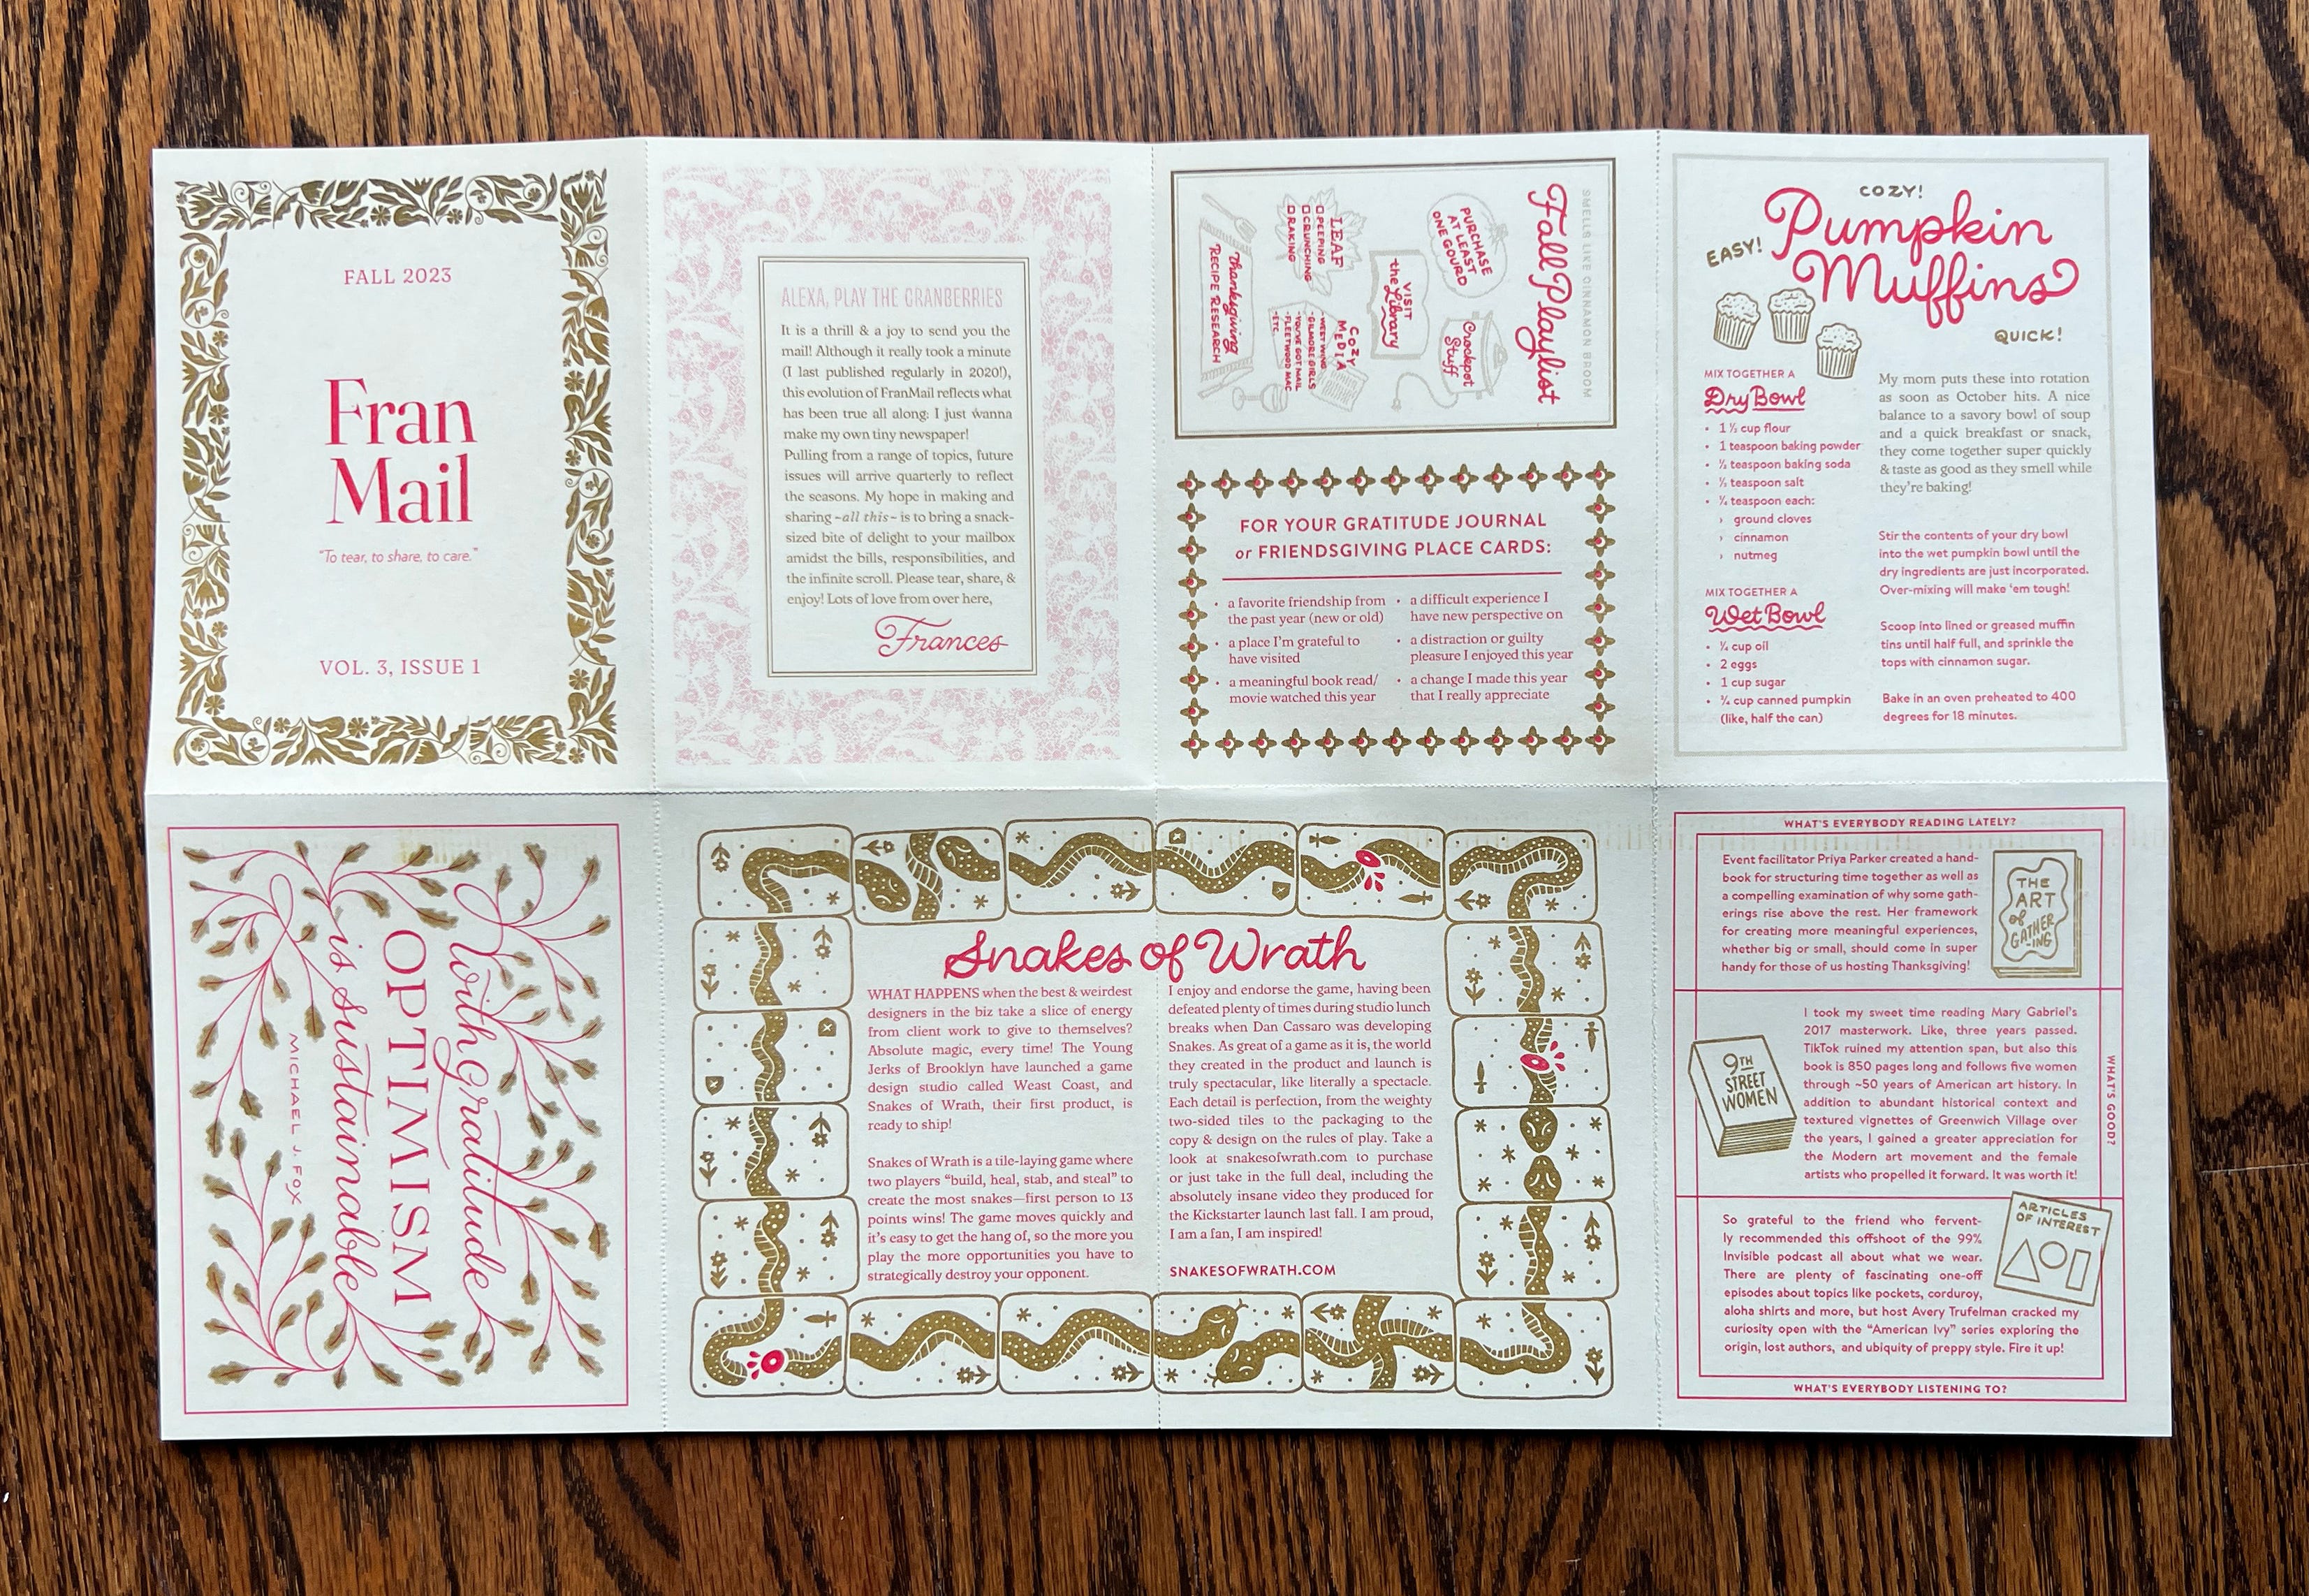 FALL 2023
Fran
Mail
"To tear, to share, to care."
VOL. 3, ISSUE 1
ALEXA, PLAY THE CRANBERRIES
It is a thrill & a joy to send you the
mail! Although it really took a minute
(I last published regularly in 2020!),
this evolution of FranMail reflects what
has been true all along: I just wanna
make my own tiny newspaper!
Pulling from a range of topics, future
issues will arrive quarterly to reflect
the seasons. My hope in making and
sharing ~all this~ is to bring a snack-
sized bite of delight to your mailbox
amidst the bills, responsibilities, and
the infinite scroll. Please tear, share, &
enjoy! Lots of love from over here,
Frances
SMELLS LIKE CINNAMON BROOM
Fall Playlist
PURCHASE
AT LEAST
ONE GOURD
Crockpot
Stuff
VISIT
the Library
LEAF
PEEPING
CRUNCHING
RAKING
COZY
MEDIA
-WEST WING
-GILMORE GIRLS
-YOU'VE GOT MAIL
-FLEETWOOD MAC
-ETC.
Thanksgiving
RECIPE RESEARCH
FOR YOUR GRATITUDE JOURNAL
or FRIENDSGIVING PLACE CARDS:
• a favorite friendship from
the past year (new or old)
• a place I'm grateful to
have visited
• a meaningful book read/
movie watched this year
• a difficult experience I
have new perspective on
• a distraction or guilty
pleasure I enjoyed this year
• a change I made this year
that I really appreciate
COZY!
EASY!
Pumpkin
Muffins
QUICK!
MIX TOGETHER A
Dry Bowl
• 1 ½ cup flour
• 1 teaspoon baking powder
• ½ teaspoon baking soda
• ½ teaspoon salt
• ¼ teaspoon each:
› ground cloves
› cinnamon
› nutmeg
MIX TOGETHER A
Wet Bowl
• ¼ cup oil
• 2 eggs
• 1 cup sugar
• ¾ cup canned pumpkin
(like, half the can)
My mom puts these into rotation
as soon as October hits. A nice
balance to a savory bowl of soup
and a quick breakfast or snack,
they come together super quickly
& taste as good as they smell while
they're baking!
Stir the contents of your dry bowl
into the wet pumpkin bowl until the
dry ingredients are just incorporated.
Over-mixing will make 'em tough!
Scoop into lined or greased muffin
tins until half full, and sprinkle the
tops with cinnamon sugar.
Bake in an oven preheated to 400
degrees for 18 minutes.
With gratitude
OPTIMISM
is sustainable
MICHAEL J. FOX
Snakes of Wrath
WHAT HAPPENS when the best & weirdest
designers in the biz take a slice of energy
from client work to give to themselves?
Absolute magic, every time! The Young
Jerks of Brooklyn have launched a game
design studio called Weast Coast, and
Snakes of Wrath, their first product, is
ready to ship!
Snakes of Wrath is a tile-laying game where
two players "build, heal, stab, and steal" to
create the most snakes—first person to 13
points wins! The game moves quickly and
it's easy to get the hang of, so the more you
play the more opportunities you have to
strategically destroy your opponent.
I enjoy and endorse the game, having been
defeated plenty of times during studio lunch
breaks when Dan Cassaro was developing
Snakes. As great of a game as it is, the world
they created in the product and launch is
truly spectacular, like literally a spectacle.
Each detail is perfection, from the weighty
two-sided tiles to the packaging to the
copy & design on the rules of play. Take a
look at snakesofwrath.com to purchase
or just take in the full deal, including the
absolutely insane video they produced for
the Kickstarter launch last fall. I am proud,
I am a fan, I am inspired!
SNAKESOFWRATH.COM
WHAT'S EVERYBODY READING LATELY?
Event facilitator Priya Parker created a hand-
book for structuring time together as well as
a compelling examination of why some gath-
erings rise above the rest. Her framework
for creating more meaningful experiences,
whether big or small, should come in super
handy for those of us hosting Thanksgiving!
THE
ART
of
GATHER
-ING
9TH
STREET
WOMEN
I took my sweet time reading Mary Gabriel's
2017 masterwork. Like, three years passed.
TikTok ruined my attention span, but also this
book is 850 pages long and follows five women
through ~50 years of American art history. In
addition to abundant historical context and
textured vignettes of Greenwich Village over
the years, I gained a greater appreciation for
the Modern art movement and the female
artists who propelled it forward. It was worth it!
WHAT'S GOOD?
So grateful to the friend who fervent-
ly recommended this offshoot of the 99%
Invisible podcast all about what we wear.
There are plenty of fascinating one-off
episodes about topics like pockets, corduroy,
aloha shirts and more, but host Avery Trufelman cracked my
curiosity open with the "American Ivy" series exploring the
origin, lost authors, and ubiquity of preppy style. Fire it up!
ARTICLES
OF INTEREST
WHAT'S EVERYBODY LISTENING TO?